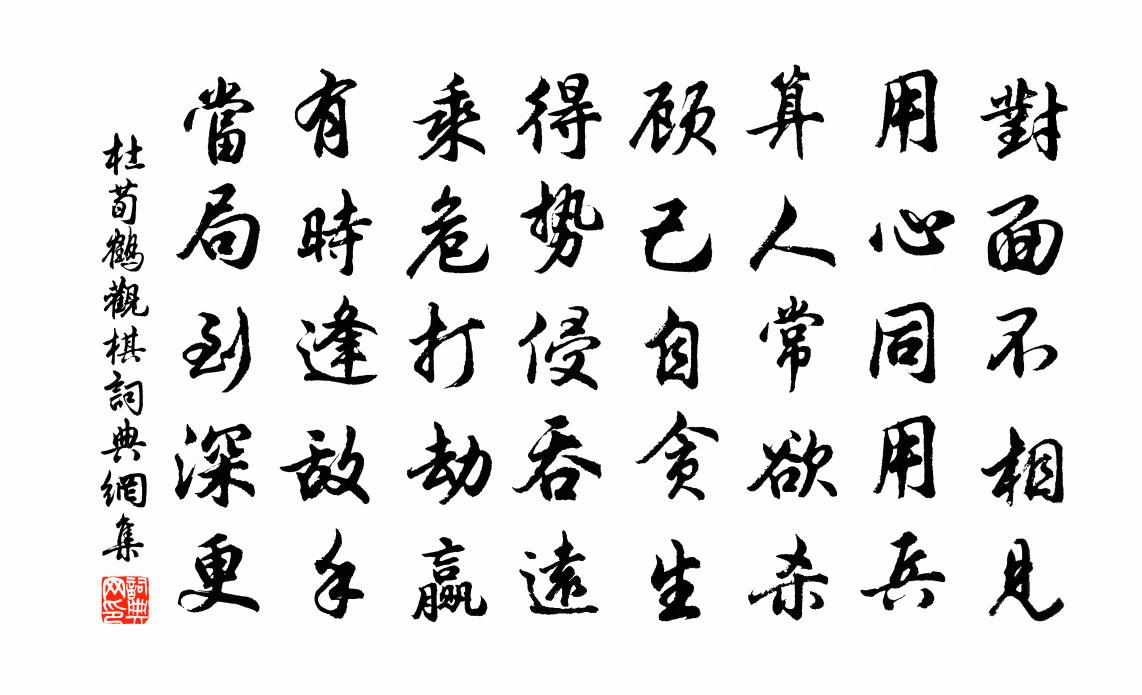 對面不相見
用心同用兵
算人常欲杀
顾己自贪生
得势侵吞遠
乘危打劫赢
有時逢敌手
當局到深更
杜荀鶴觀棋詞典網集
詞典
网印